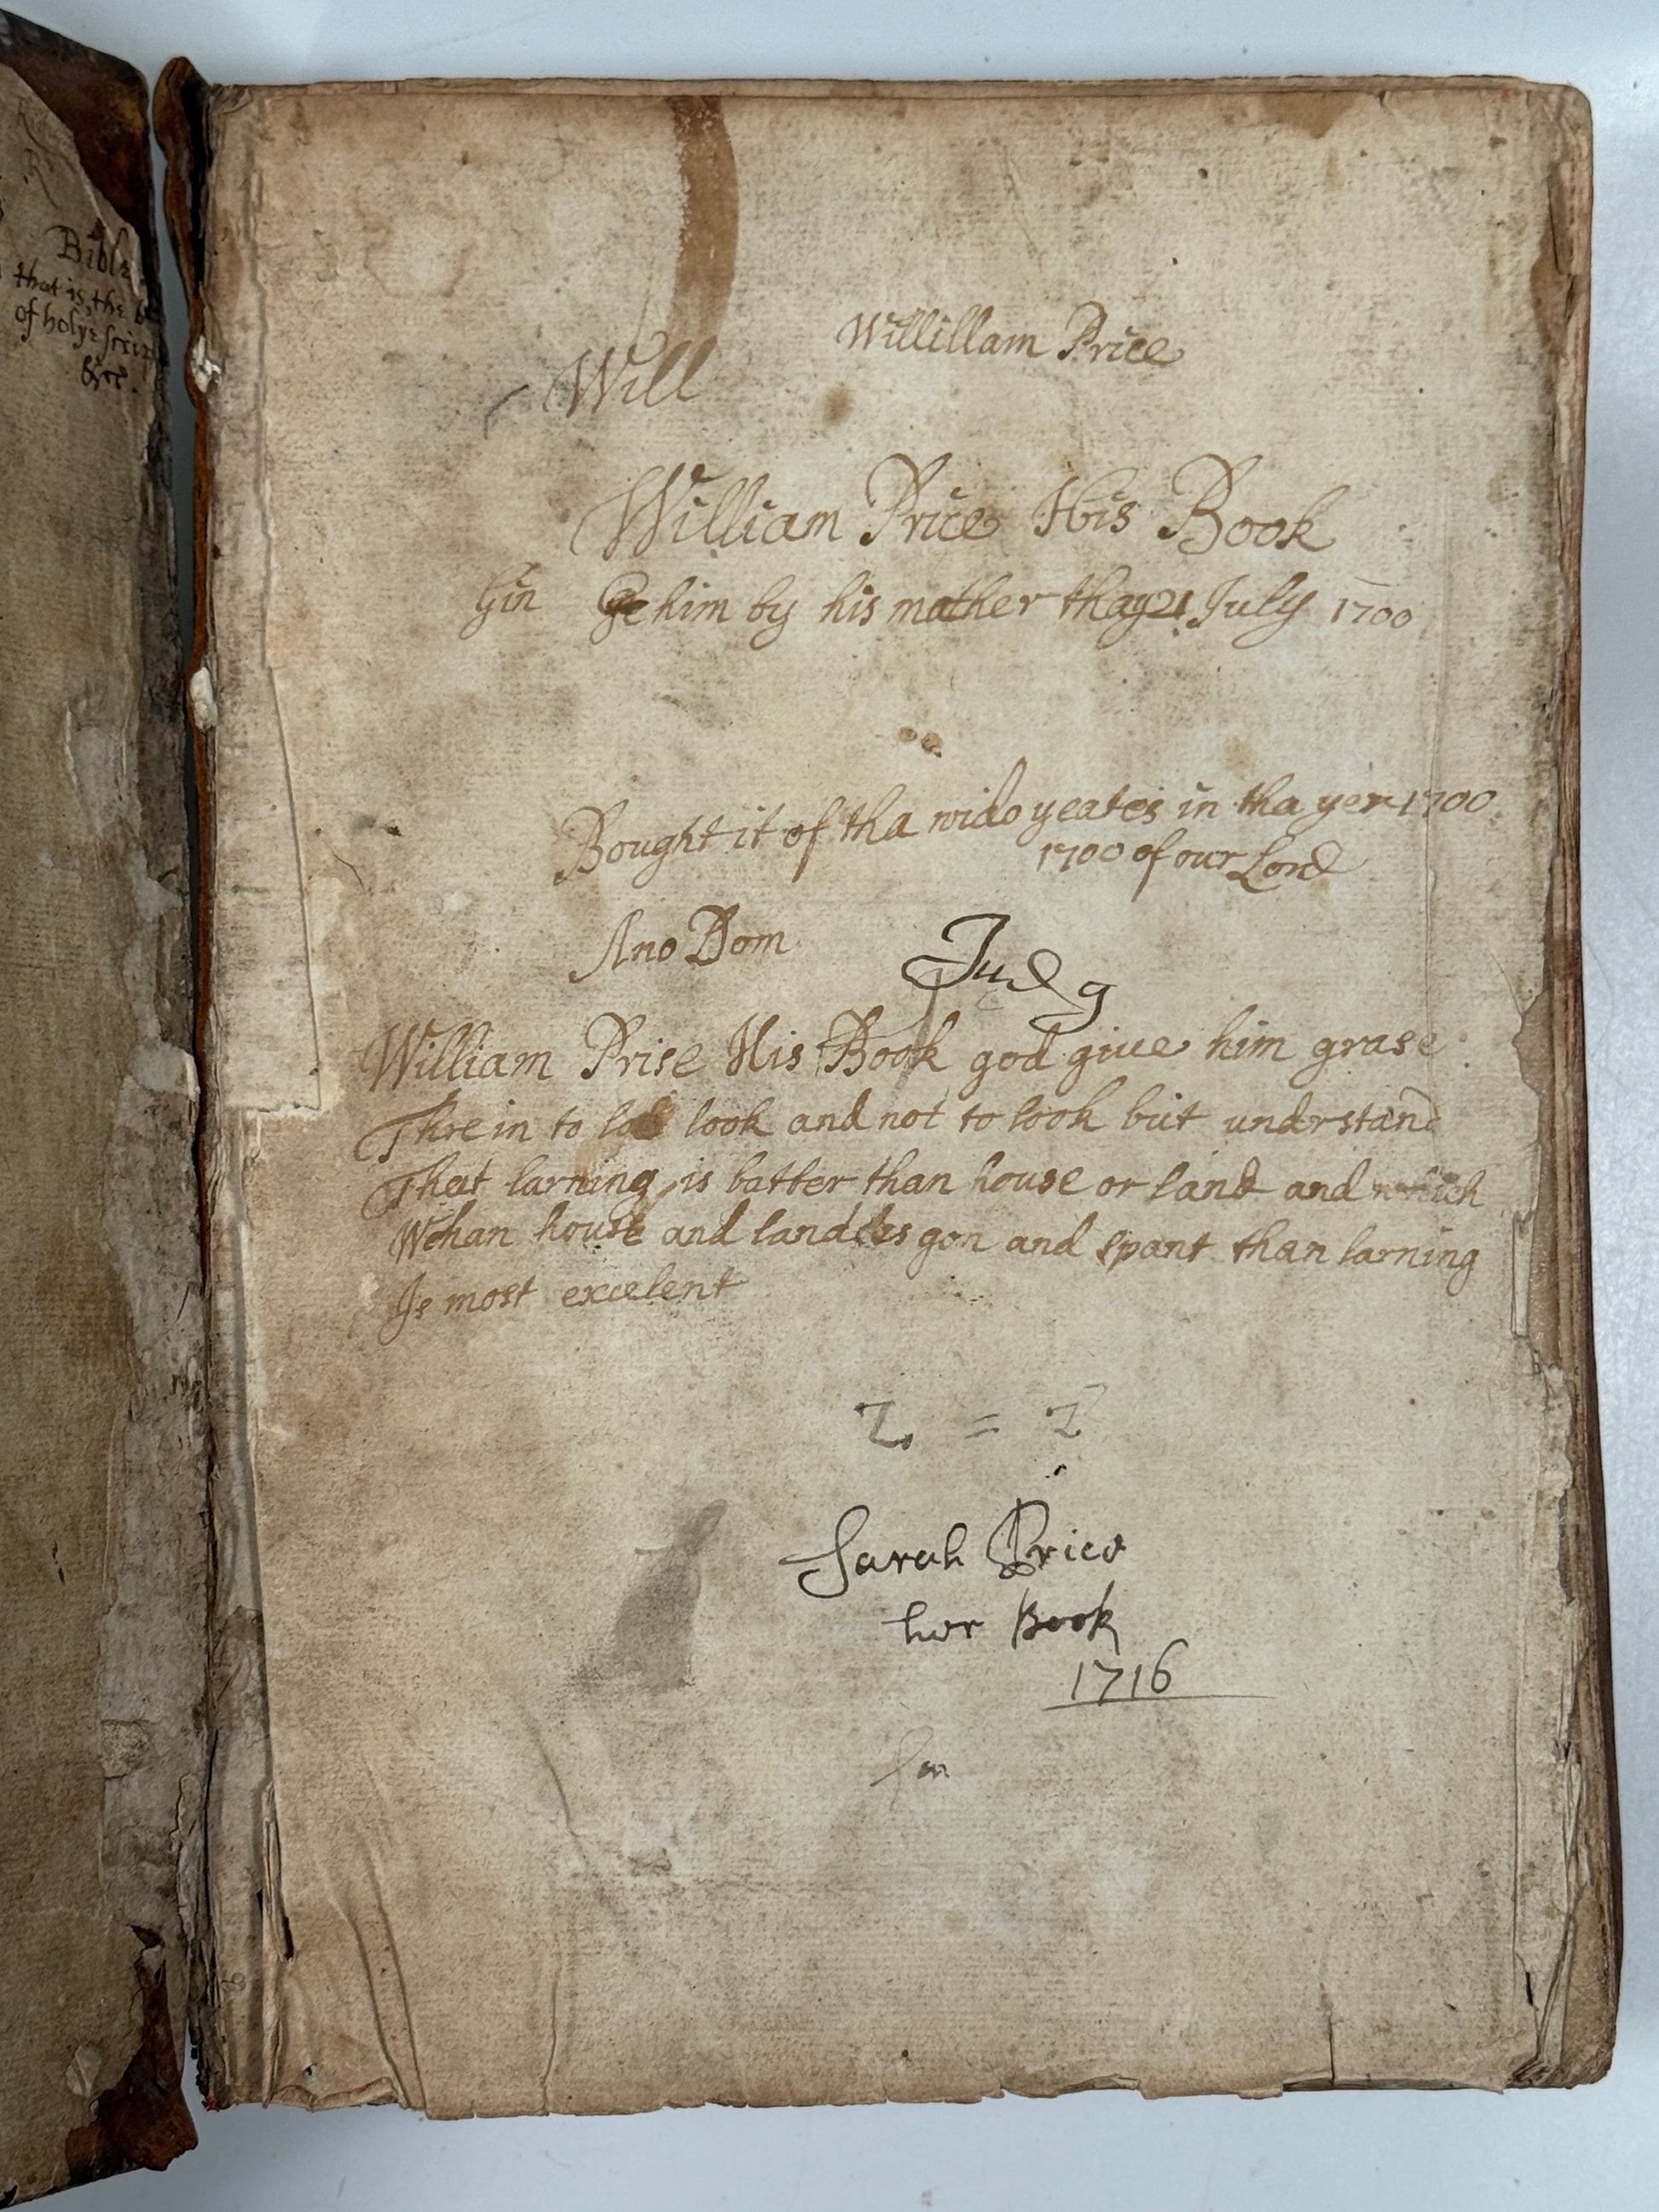 Bible
that is, the
of holye
&c.
Willillam Price
Will
William Price His Book
Gin him by his mother thay 21 July 1700
Bought it of tha wido yeates in tha yer 1700
1700 of our Lord
Ano Dom
Judg
William Prise His Book god give him grase
Thre in to look and not to look but understand
That larning is batter than house or land and which
Whan house and landes gon and spant than larning
Is most excelent
2 = 2
Sarah Price
her Book
1716